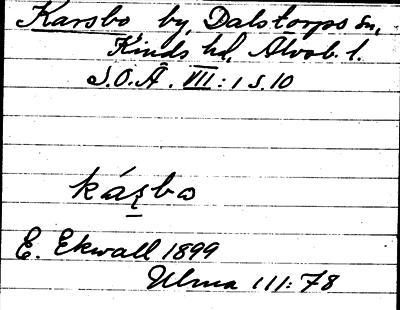 Karsbo by, Dalstorps sn,
Kinds hd, Älvsb. l.
S.O.Ä. VII:1 s.10
kázbo
E. Ekwall 1899
Ulma 111:78